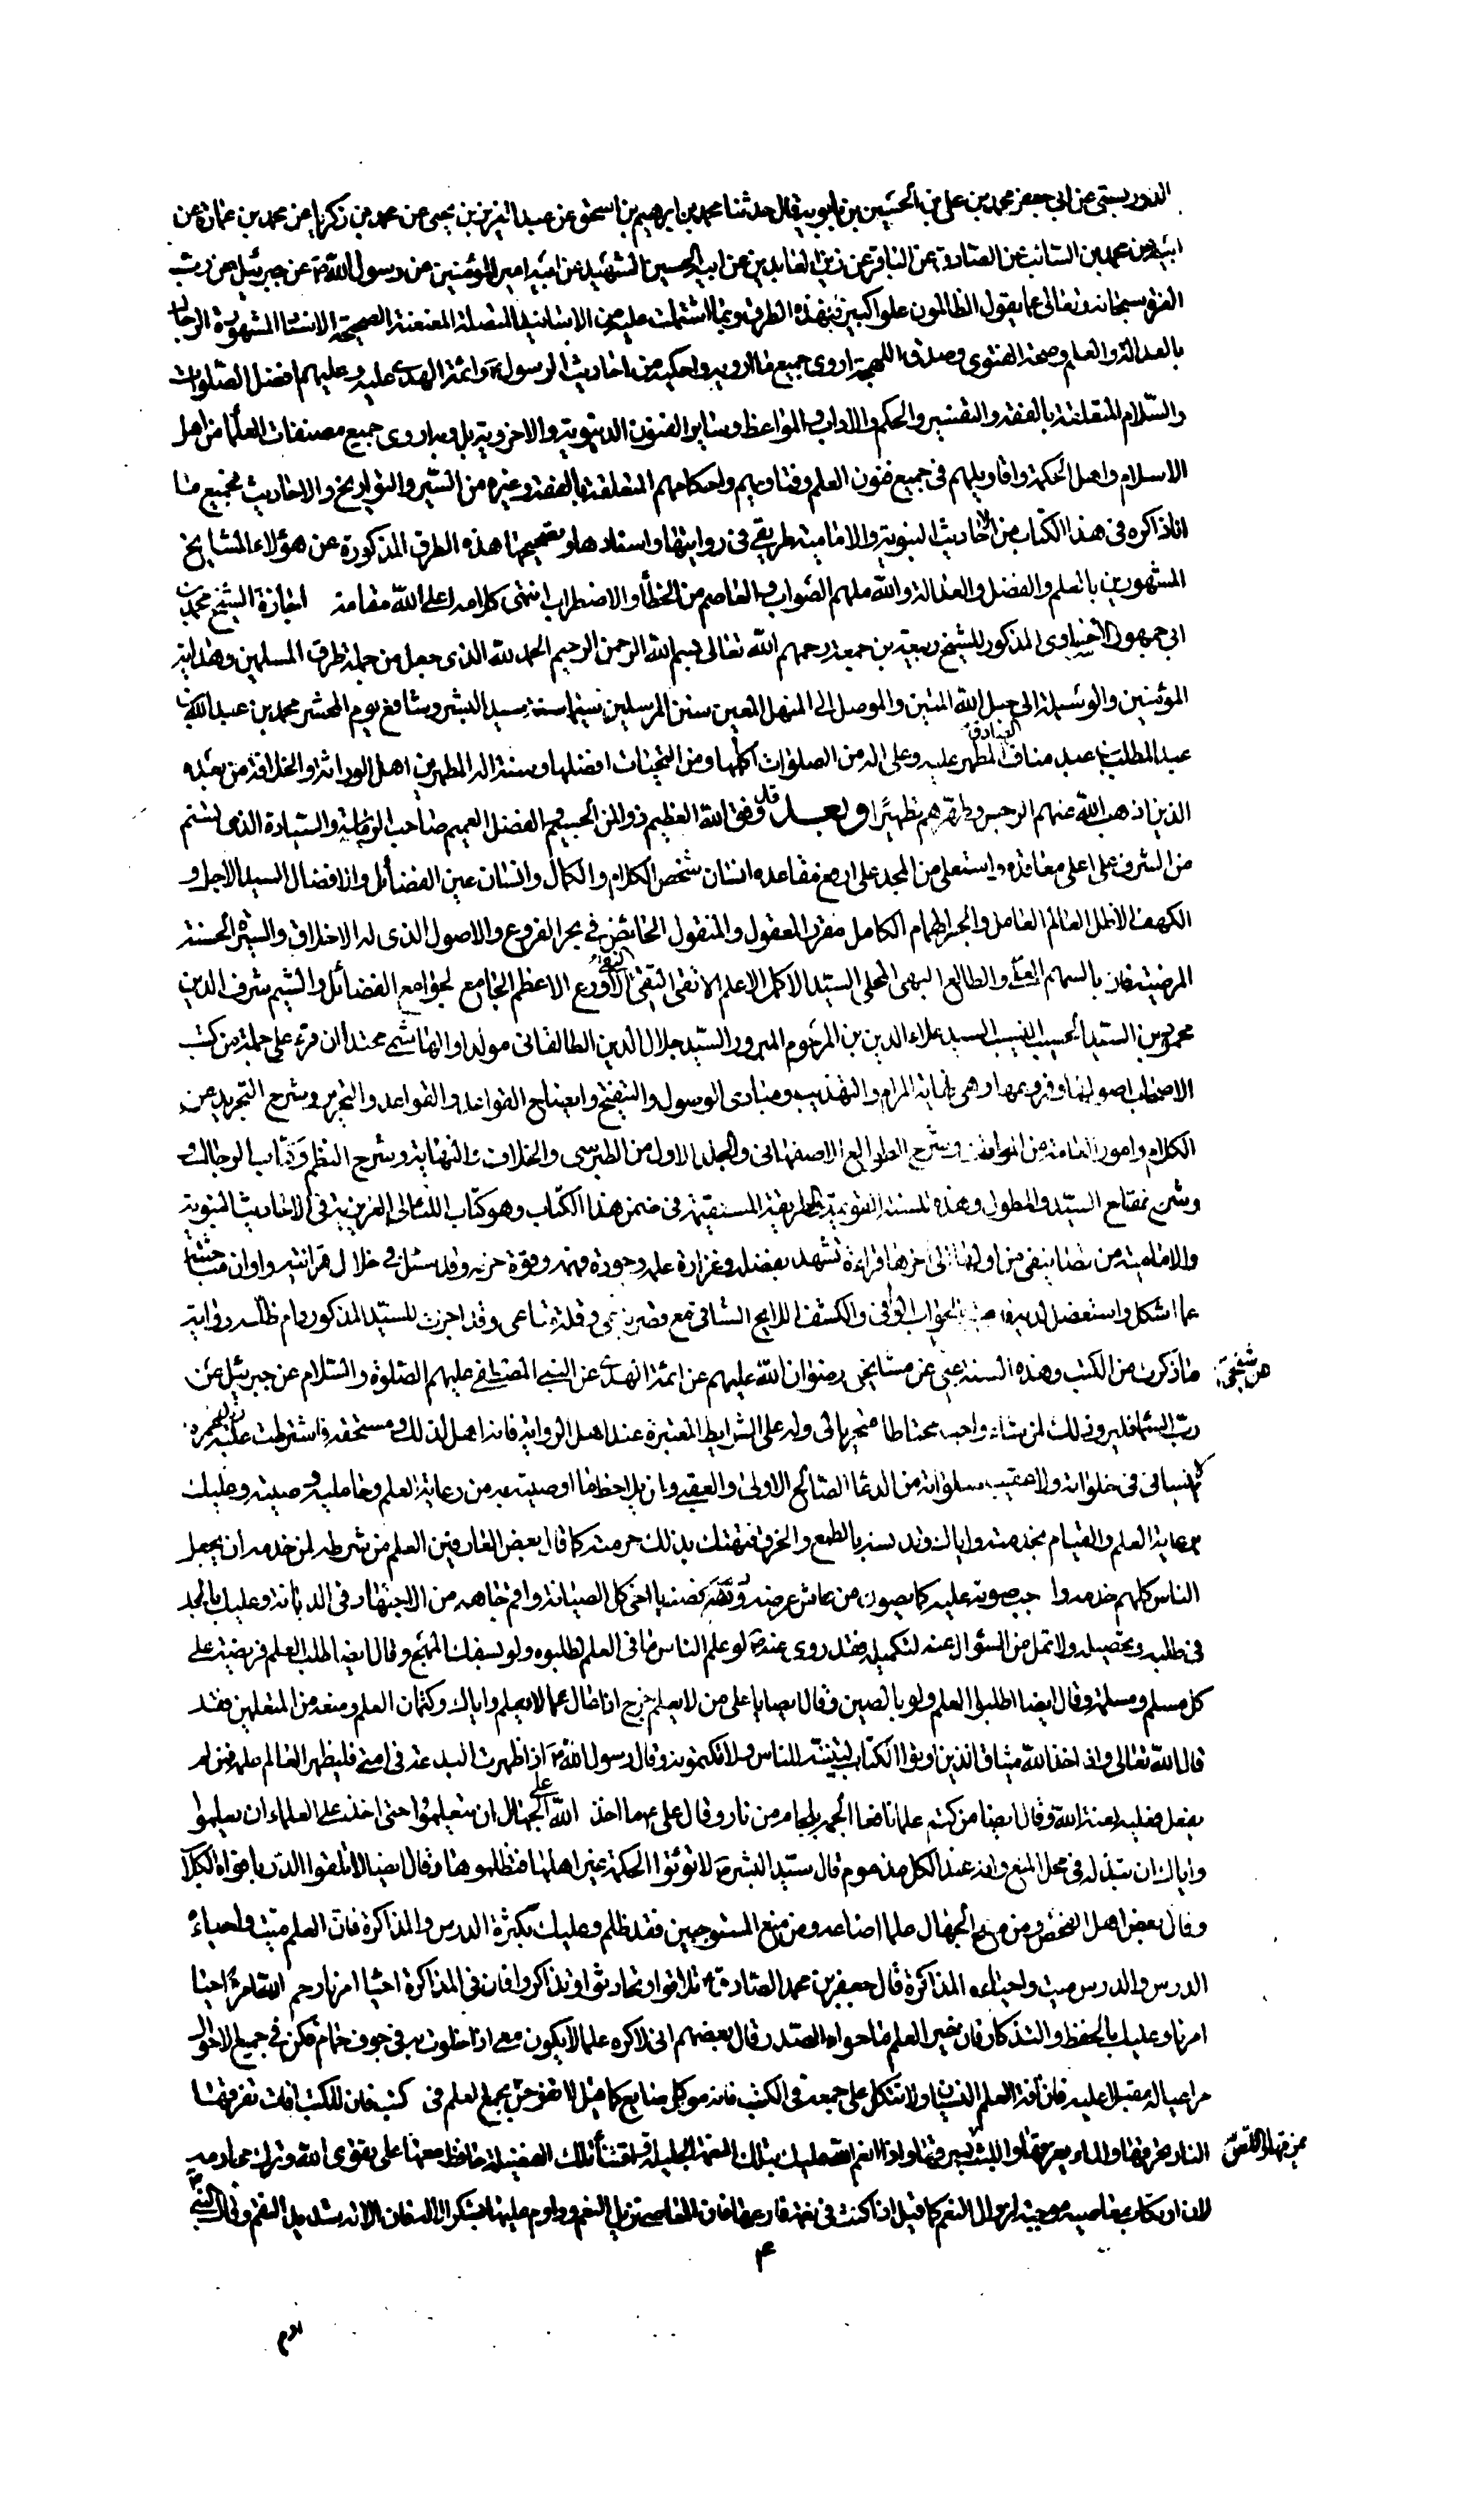 الدوريستى عن ابى جعفر محمد بن على بن الحسين بن بابويه قال حدثنا محمد بن ابرهيم بن اسحق عن عبد العزيز بن يحيى عن محمد بن زكريا عن محمد بن عمارة عن
ابيه عن محمد بن السائب عن الصادق عن الباقر عن زين العابدين عن ابيه الحسين الشهيد عن ابيه امير المؤمنين عن رسول الله ص عن جبرئيل عن رب
العزة سبحانه وتعالى عما يقول الظالمون علوا كبيرا فبهذه الطرق وبما اشتملت عليه من الاسانيد المتصلة المعنعنة الصحيحة الاسناد المشهورة الرجال
بالعدالة والعلم وصحة الفتوى وصدق اللهجة اروى جميع ما ارويه واحكيه من احاديث الرسول ص وائمة الهدى عليه وعليهم افضل الصلوات
والسلام المتعلقة بالفقه والتفسير والحكم والاداب والمواعظ وسائر الفنون الدنيوية والاخروية بل وبه اروى جميع مصنفات العلما من اهل
الاسلام واهل الحكمة واقاويلهم فى جميع فنون العلم وفتاويهم واحكامهم المتعلقة بالفقه وغيره من السير والتواريخ والاحاديث فجميع ما
انا ذاكره فى هذا الكتاب من الاحاديث النبوية والامامية طريقى فى روايتها واسنادها وتصحيحها هذه الطرق المذكورة عن هؤلاء المشايخ
المشهورين بالعلم والفضل والعدالة والله ملهم الصواب والعاصم من الخطأ والاضطراب انتهى كلامه اعلى الله مقامه اجازة الشيخ محمد بن
ابى جمهور الاحساوى المذكور للشيخ ربيعة بن جمعة رحمهم الله تعالى بسم الله الرحمن الرحيم الحمد لله الذى جعل من جملة طرق المسلمين وهداية
المؤمنين والوسيلة الى حبل الله المتين والموصل الى المنهل المعين سنن المرسلين سيما سنة سيد البشر وشافع يوم المحشر محمد بن عبد الله بن
عبد المطلب بن عبد مناف الصادق المطهر عليه وعلى اله من الصلوات اكملها ومن التحيات افضلها وسنة اله المطهرين اهل الوراثة والخلافة من بعده
الذين اذهب الله عنهم الرجس وطهرهم تطهيرا وبعد قد وفق الله العظيم ذو المن الجسيم والفضل العميم صاحب الرياسة والسيادة الذى تسنم
من الشرف على اعلى معاقده واستعلى من المجد على ارفع مقاعده انسان شخص الكلام والكمال وانسان عين الفضائل والافضال السيد الاجل و
الكهف الاظل العالم العامل والحبر الهمام الكامل مقرر المعقول والمنقول الخائض فى بحر الفروع والاصول الذى له الاخلاق والسير الحسنة
المرضية فاز بالسهام العلى والطالع البهى المحلى السيد الاكمل الاعلم الاتقى التقى النقى الاورع الاعظم الجامع لجوامع الفضائل والشيم شرف الدين
محمود بن السيد الحسيب النسيب السيد علاء الدين بن المرحوم المبرور السيد جلال الدين الطالقانى مولدا والهاشمى محتدا ان قرء على جملة من كتب
الاصحاب اصولها وفروعها وهى نهاية المرام والتهذيب ومبادى الوصول والتنقيح وايضاح القواعد والقواعد والتحرير وشرح التجريد من
الكلام وامور العامة من المواقف وشرح الطوالع الاصفهانى والمجلد الاول من الطبرسى والخلاف والنهاية وشرح النظم وكتاب الرجال
وشرح مفتاح السيد والمطول وهذه السنة القويمة والطريقة المستقيمة فى ضمن هذا الكتاب وهو كتاب اللئالى العزيزية فى الاحاديث النبوية
والامامية من تصانيفى من اولها الى اخرها قراءة تشهد بفضله وغزارة علمه وجودة فهمه وقوة حزبه وقد سئل فى خلال قرائته واوان مباحثته
عما اشكل واستعضل لديه الجواب الوافى والكشف اللايح الشافى مع قصر باعى وقلة متاعى وقد اجزت للسيد المذكور دام ظله رواية
ما ذكرت من الكتب وهذه السنة عنى عن مشايخى رضوان الله عليهم عن ائمة الهدى عن النبى المصطفى عليهم الصلوة والسلام عن جبرئيل عن
رب السما فليرو ذلك لمن شاء واحب محتاطا متحريا لى وله على الشرايط المعتبرة عند اهل الرواية فانه اهل لذلك ومستحقه واشترطت عليه
لا ينسانى فى خلواته ولا عقيب صلواته من الدعا الصالح الاولى والعقبى وان يلاحظ ما اوصيته به من رعاية العلم وحامليه وصيته وعليك
برعاية العلم والقيام بخدمته واياك وتدنسه بالطمع والخرق فتهتك بذلك حرمته كما قال بعض العارفين العلم من شرطه لمن خدمه ان يجعل
الناس كلهم خدمه واوجب صونه عليه كما يصون من عاش عرضه ودمه فصنه يا اخى كل الصيانة واقم جاهه من الاجتهاد فى الديانة وعليك بالجد
فى طلبه وتحصيله ولا تمل من السؤال عنه لتكميله فقد روى عنه ص لو علم الناس ما فى العلم لطلبوه ولو بسفك المهج وقال ايضا طلب العلم فريضة على
كل مسلم ومسلمة وقال ايضا اطلبوا العلم ولو بالصين وقال ايضا ما على من لا يعلم حرج اذا سال عما لا يعلم واياك وكتمان العلم ومنعه من المتعلمين فقد
قال الله تعالى واذ اخذ الله ميثاق الذين اوتوا الكتاب لتبيننه للناس ولا تكتمونه وقال رسول الله ص اذا ظهرت البدعة فى امتى فليظهر العالم علمه فمن لم
يفعل فعليه لعنة الله وقال ايضا من كتم علما نافعا الجم بلجام من نار وقال على ع ما اخذ الله على الجهال ان يتعلموا حتى اخذ على العلماء ان يعلموا
واياك ان تبذله فى محل المنع وانه عند الكل مذموم قال سيد البشر ص لا تؤتوا الحكمة غير اهلها فتظلموها وقال ايضا لا تلقوا الدر بافواه الكلاب
وقال بعض اهل الفحص ومن منح الجهال علما اضاعه ومن منع المستوجبين فقد ظلم وعليك بكثرة الدرس والمذاكرة فان العلم ميت واحياءه
الدرس والدرس ميت واحياءه المذاكرة قال جعفر بن محمد الصادق ع تلاقوا وتحادثوا وتذاكروا فان فى المذاكرة احيا امرنا رحم الله امرءا احيا
امرنا وعليك بالحفظ والتذكار فان خير العلم ما حواه الصدر قال بعضهم انى لاكره علما لا يكون معى اذا خلوت به فى جوف حمام فكن فى جميع الاحوال
مراعيا له مقبلا عليه فان افة العلم النسيان ولا تتكل على جمعه فى الكتب فانه موكل ضايع كما قيل لا تفرحن بجمع العلم فى كتب فان للكتب افات تفرقها
النار تحرقها والماء يغرقها واللبث واللص يسرقها واذا انعم الله عليك بتلك النعمة الجليلة واقتناء تلك الفضيلة حافظ معها على تقوى الله وترك
لان ارتكاب معاصيه موجبة لزوال النعم كما قيل اذا كنت فى نعمة فارعها فان المعاصى تزيل النعم وداوم عليها بشكر الاله فان الاله شديد النقم